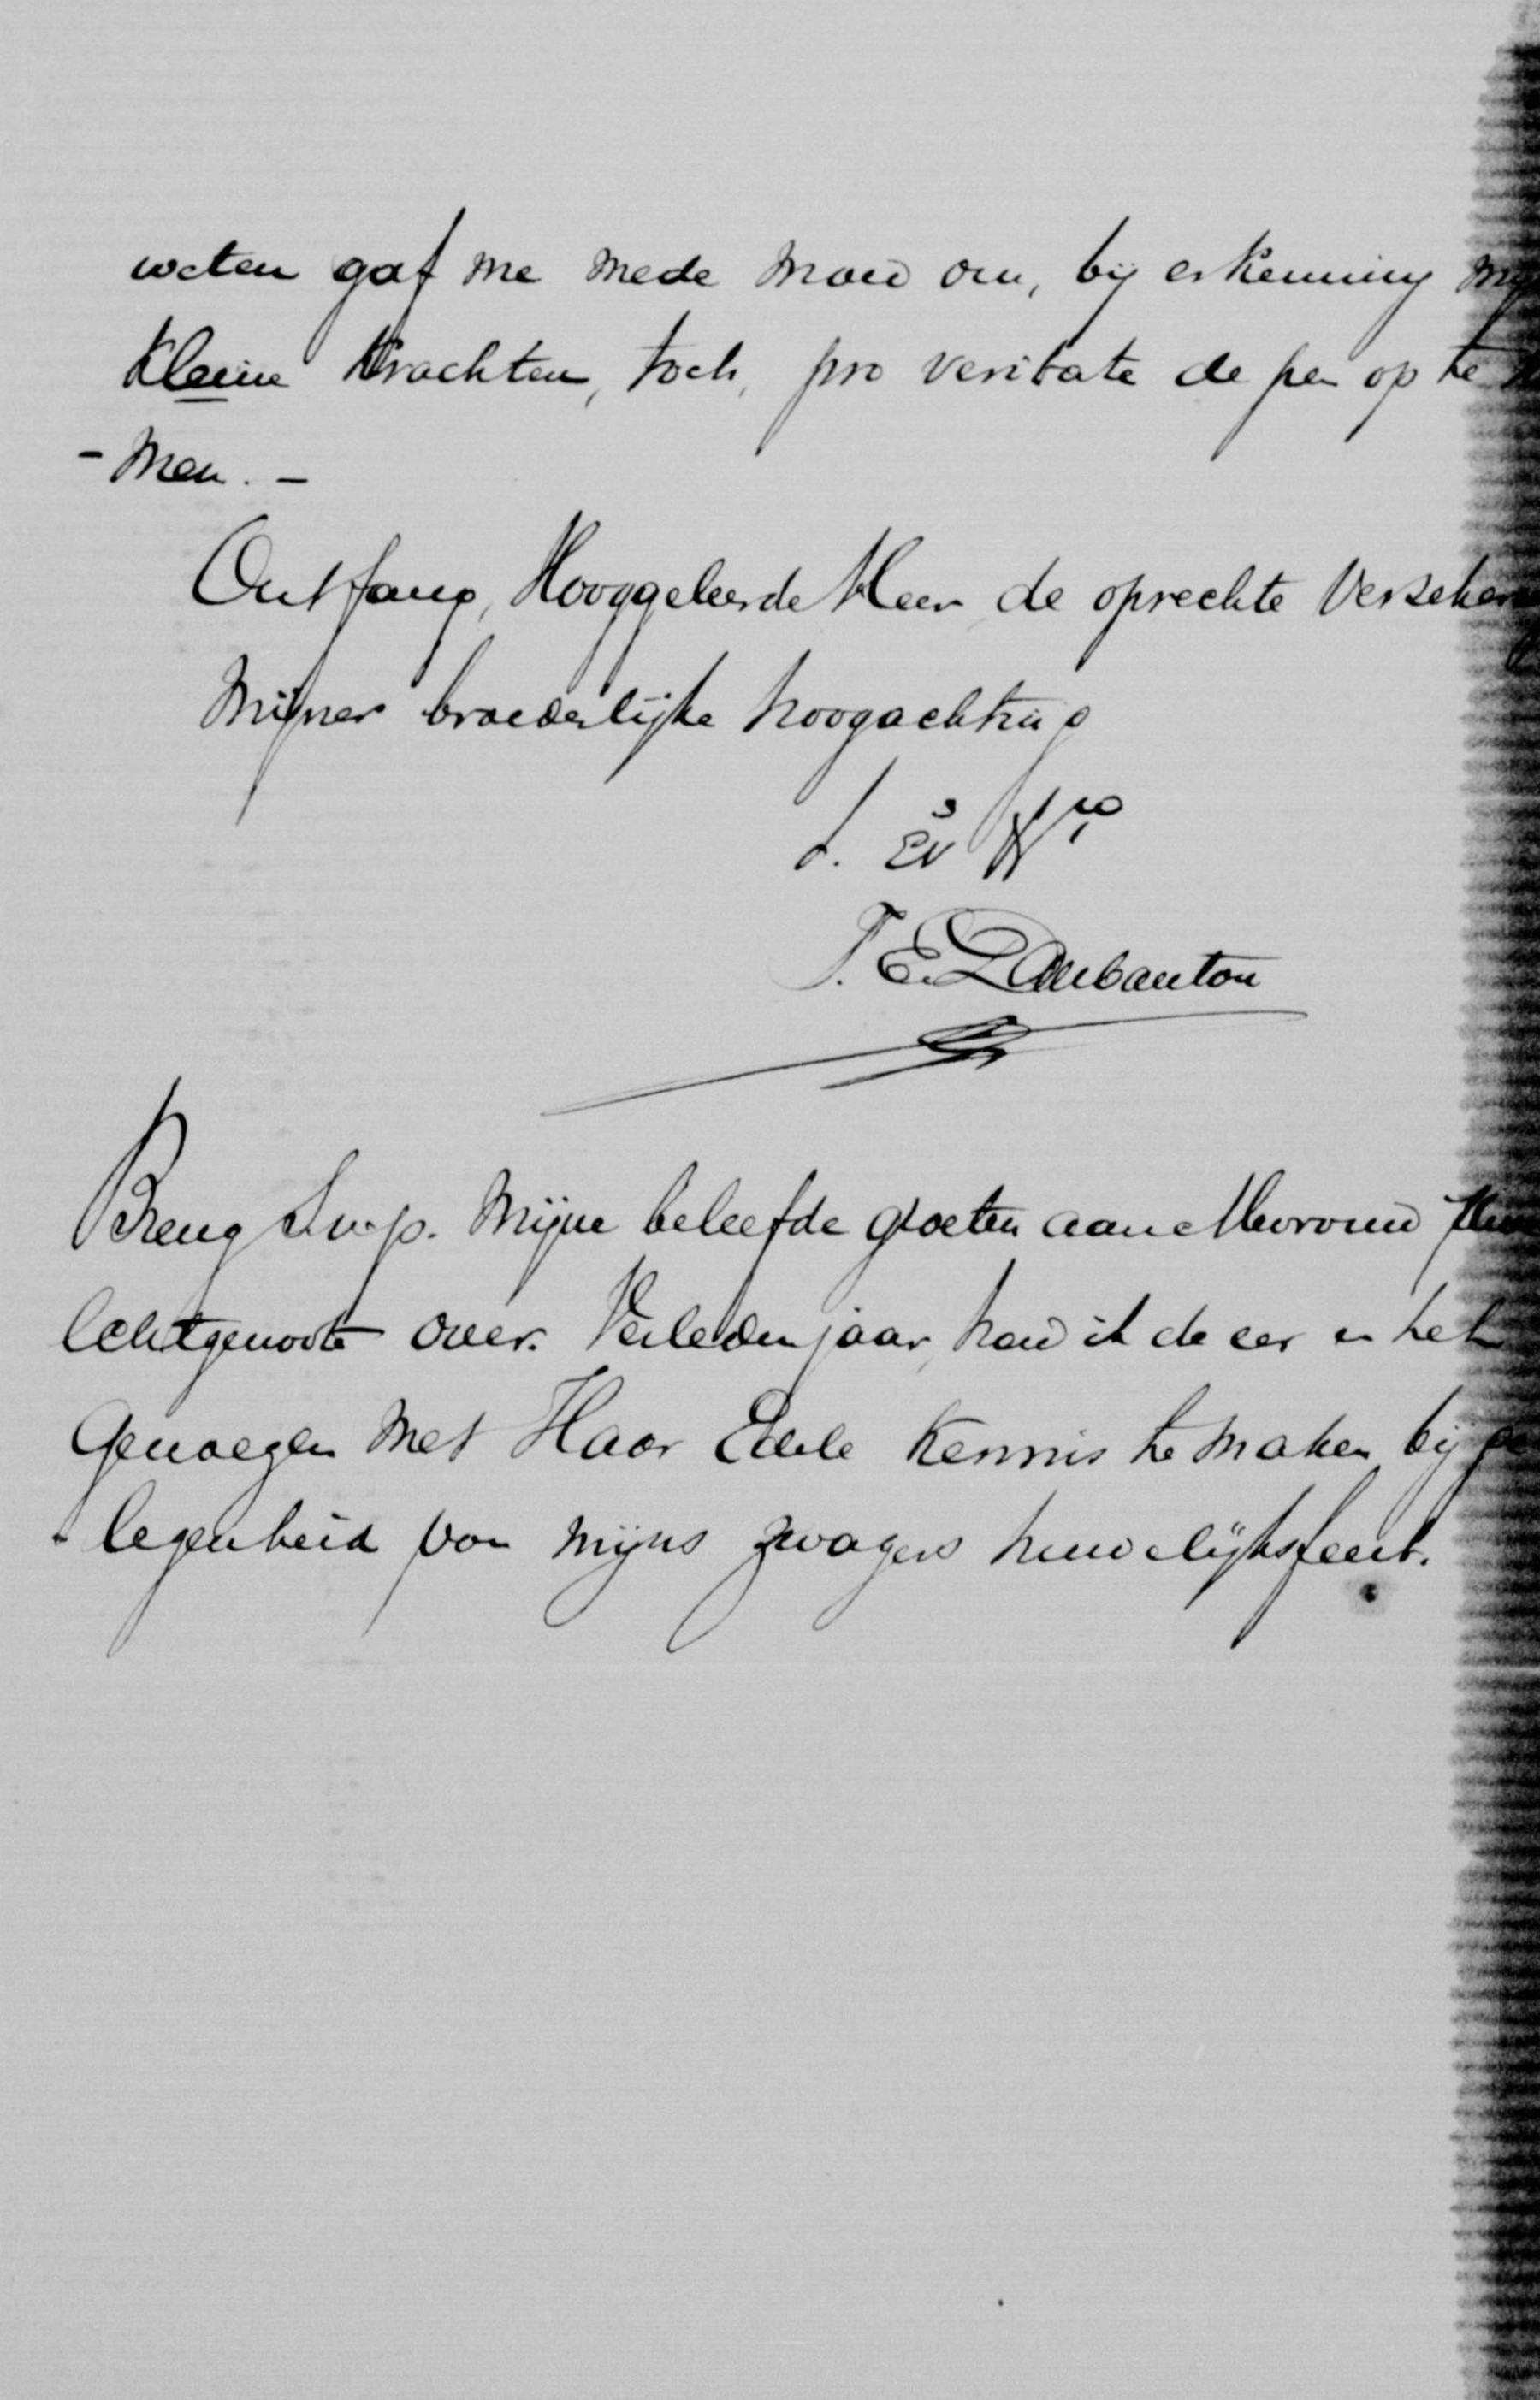 weten gaf me mede moed om, bij erkenning
kleine krachten, toch, pro veritate de pen op te
- men. -
Ontfang, Hooggeleerde Heer, de oprechte verzeker
mijner broederlijke hoogachting
t. Ev
F. E. Daubanton
Breng s.v.p. mijne beleefde groeten aan Mevrouw
Echtgenoote over. Verleden jaar, had ik de eer en het
genoegen met Haar Edele kennis te maken, bij ge
- legenheid van mijns zwagers huwelijksfeest.